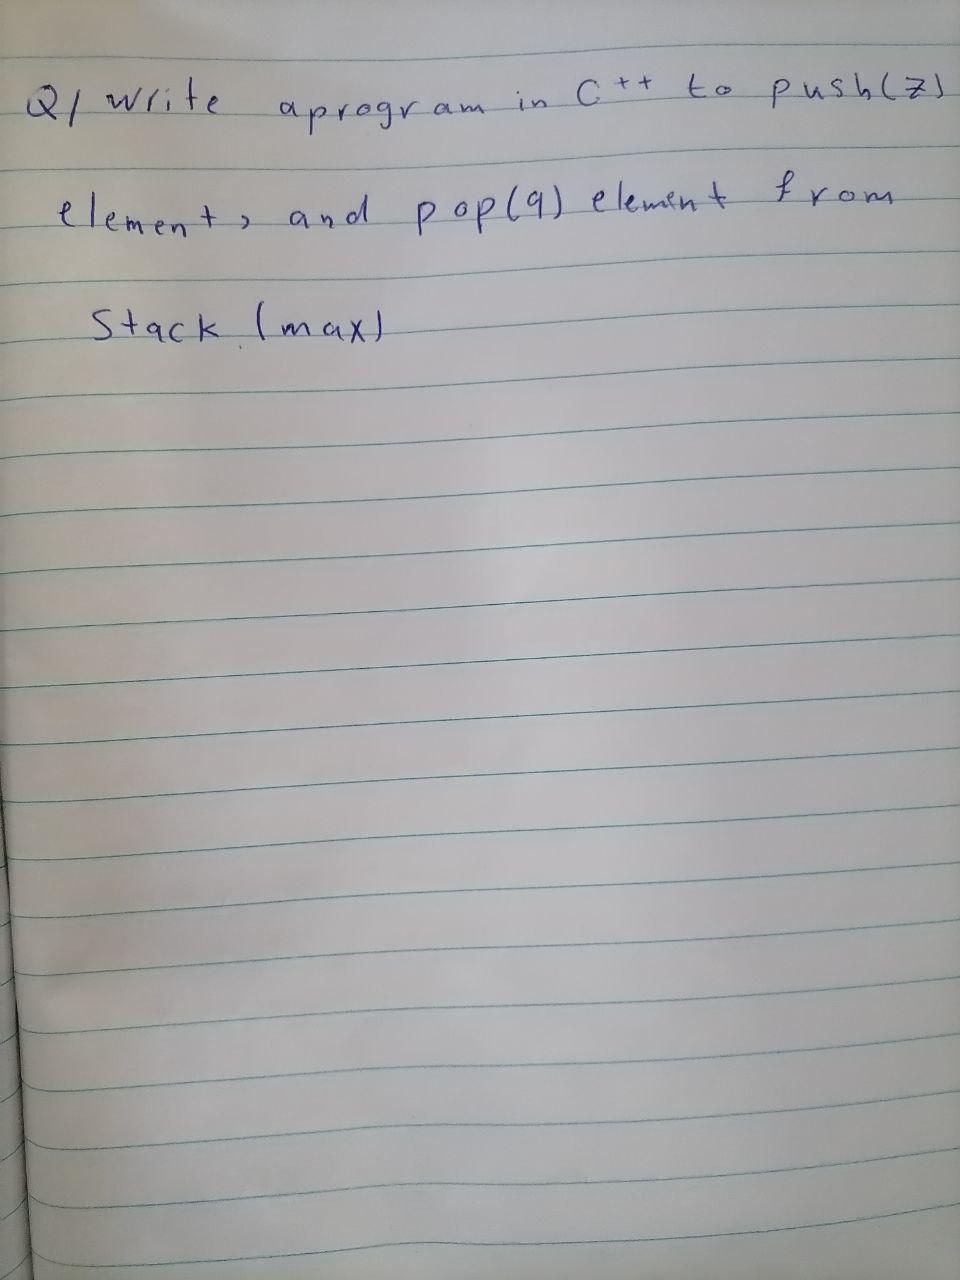 Q/ write a program in C++ to push(z)
element, and pop(q) element from
Stack (max)